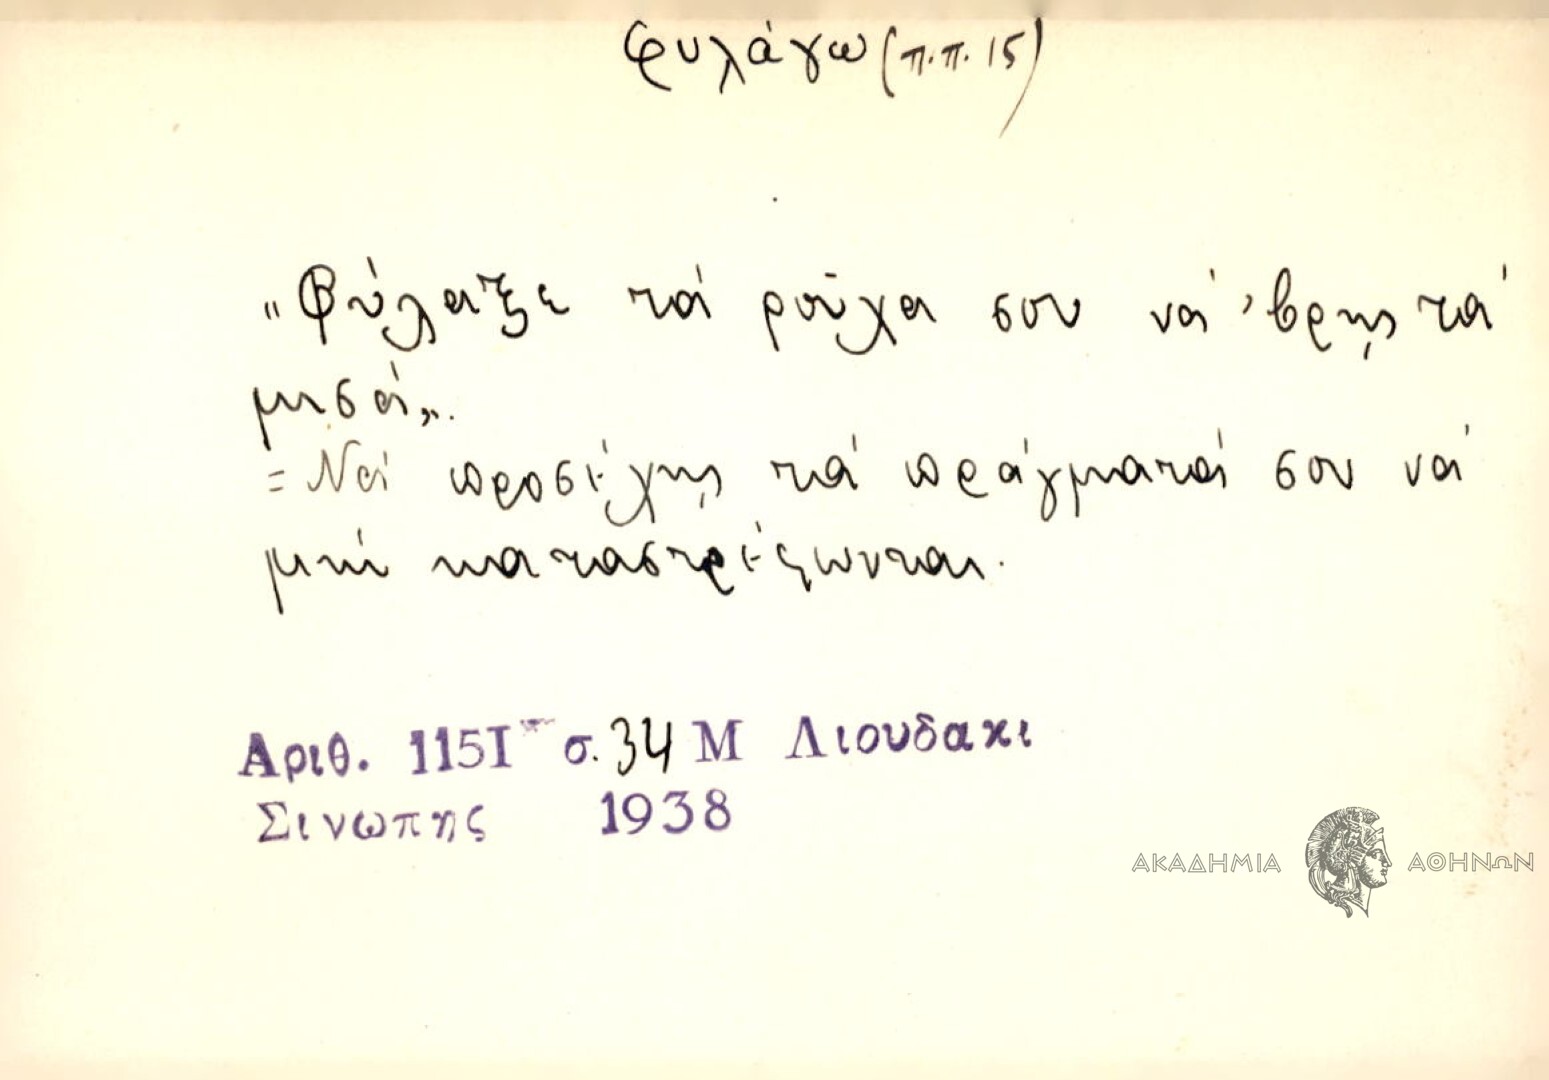 φυλάγω (π.π. 15)
„Φύλαξε τά ροῦχα σου νά 'βρῃς τά
μισά".
= Νά προσέχῃς τά πράγματά σου νά
μήν καταστρέφωνται.
Αριθ. 1151 σ. 34 Μ Λιουδακι
Σινωπης 1938
ΑΚΑΔΗΜΙΑ ΑΘΗΝΩΝ